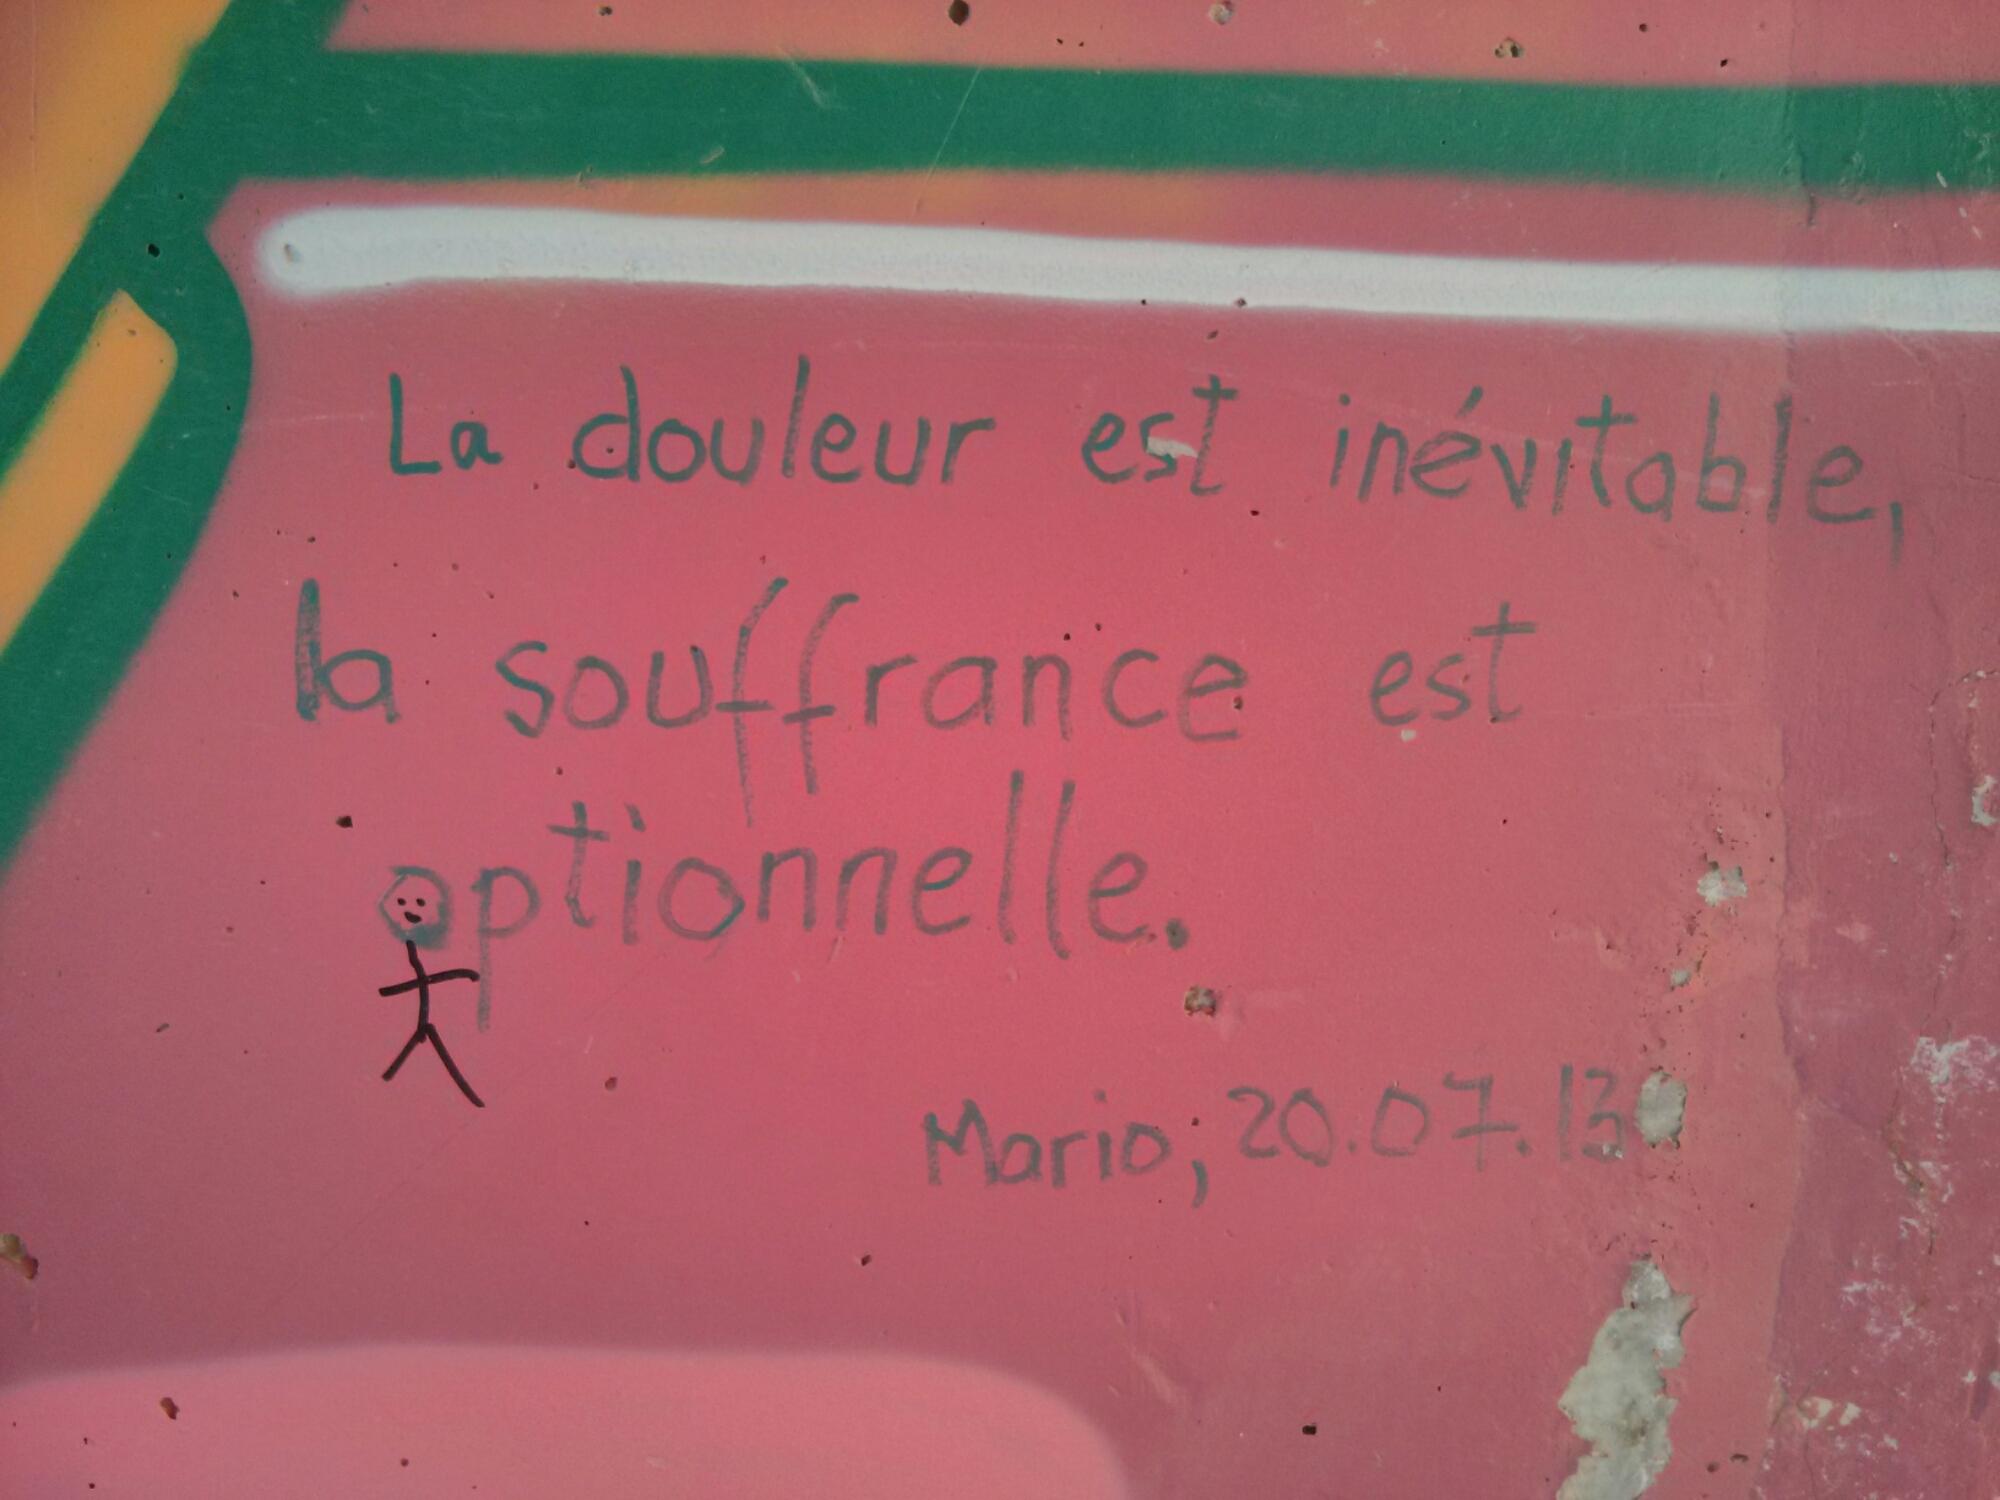 La douleur est inévitable,
la souffrance est
optionnelle.
Mario, 20.07.13